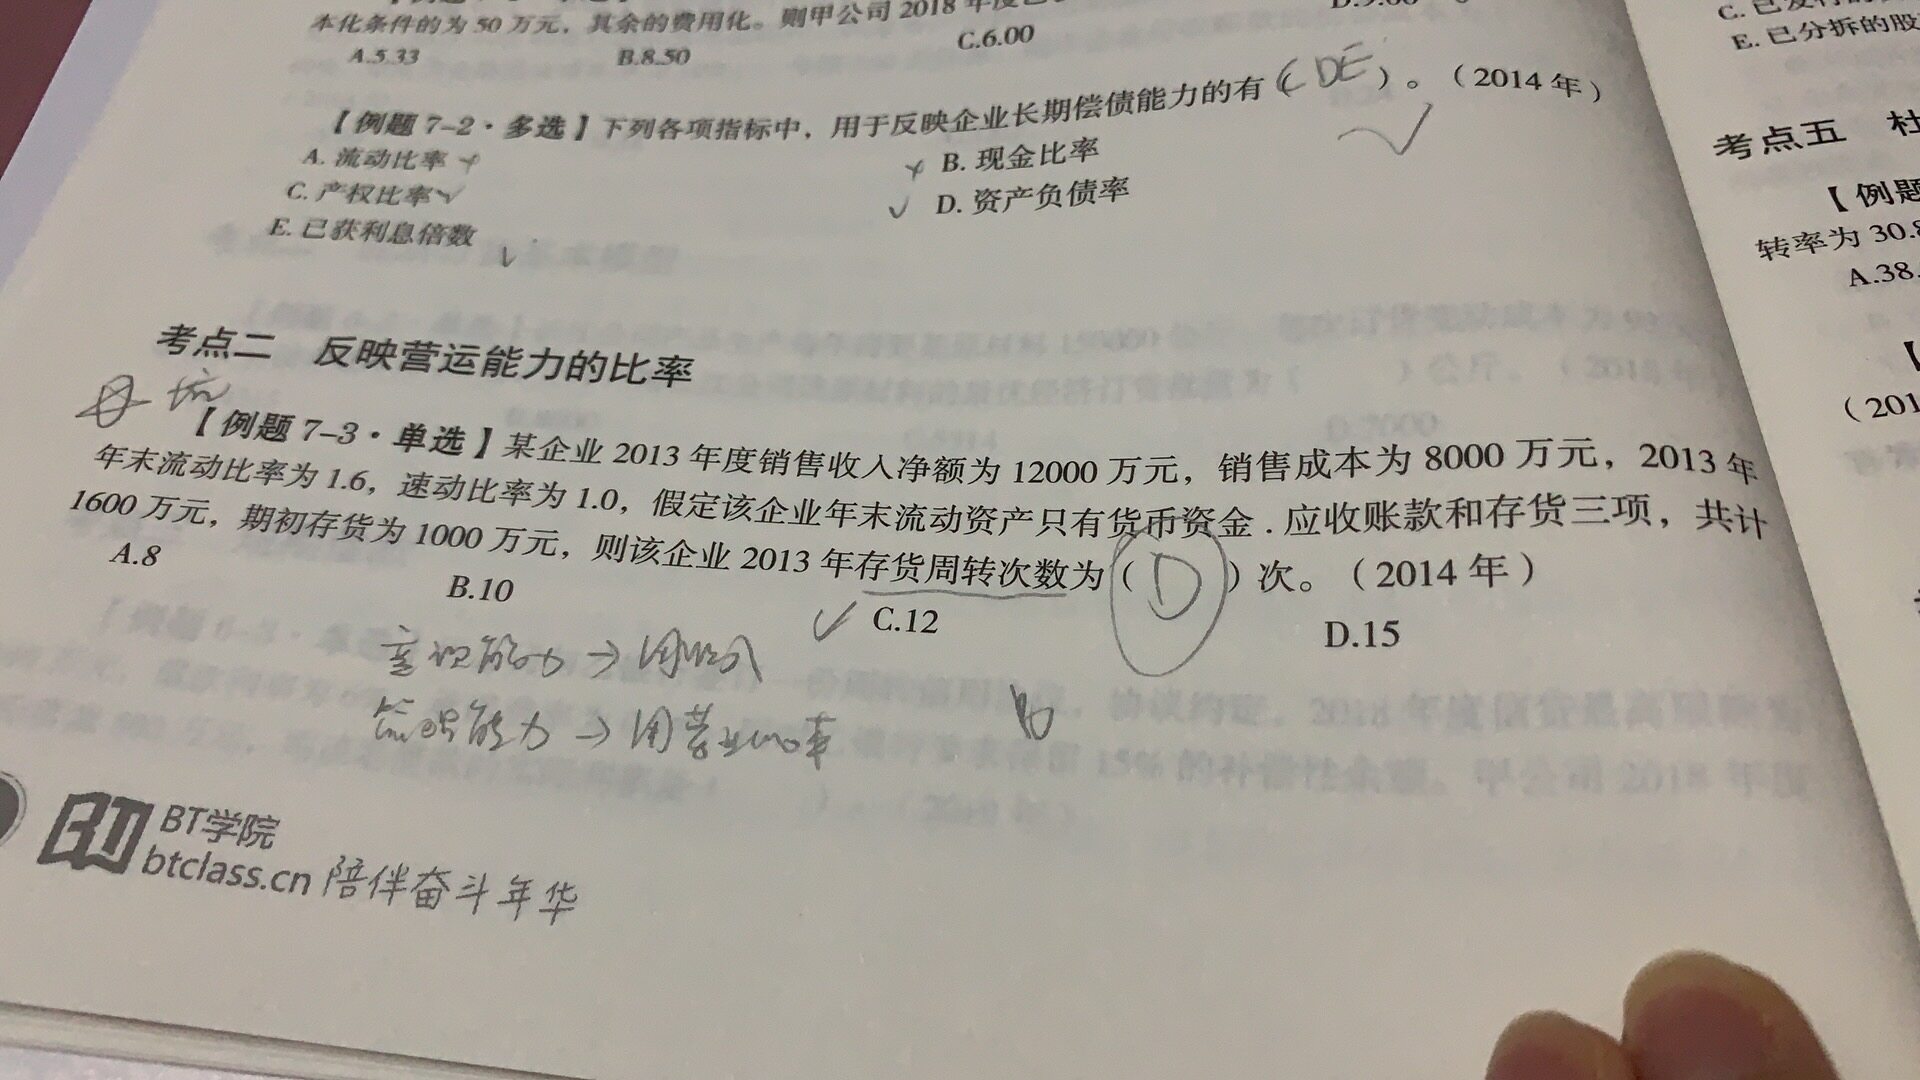 本化条件的为 50 万元，其余的费用化。则甲公司 2018 年度已
A.5.33 B.8.50 C.6.00
【例题 7-2·多选】下列各项指标中，用于反映企业长期偿债能力的有（CDE）。（2014 年）
A. 流动比率 B. 现金比率
C. 产权比率 D. 资产负债率
E. 已获利息倍数
考点二 反映营运能力的比率
坑
【例题 7-3·单选】某企业 2013 年度销售收入净额为 12000 万元，销售成本为 8000 万元，2013 年
年末流动比率为 1.6，速动比率为 1.0，假定该企业年末流动资产只有货币资金 . 应收账款和存货三项，共计
1600 万元，期初存货为 1000 万元，则该企业 2013 年存货周转次数为（D）次。（2014 年）
A.8 B.10 C.12 D.15
变现能力→用收入
管理能力→用营业成本
BT学院
btclass.cn 陪伴奋斗年华
E. 已分拆的股
考点五 杜
【例题
转率为 30.8
A.38.
（201